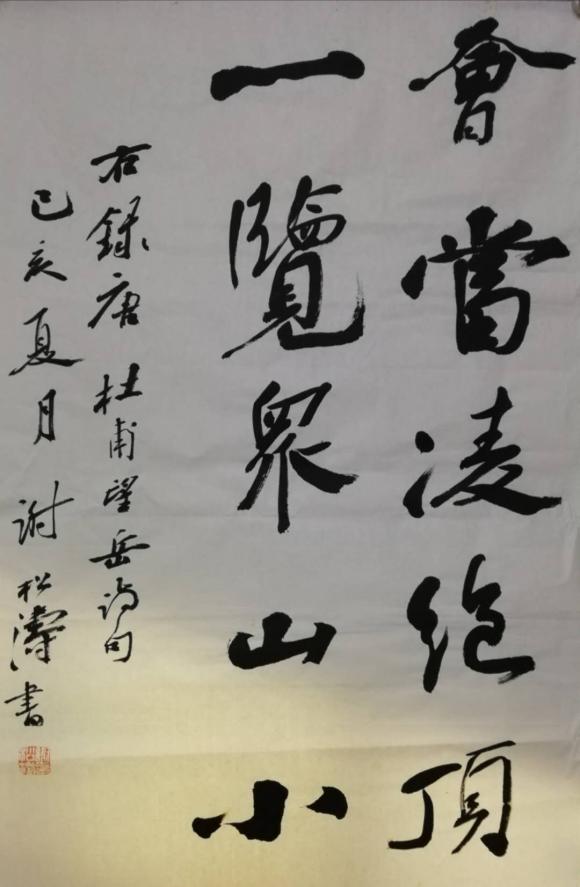 會當凌絕頂
一覽眾山小
右錄唐杜甫望岳詩句
己亥夏月謝松濤書